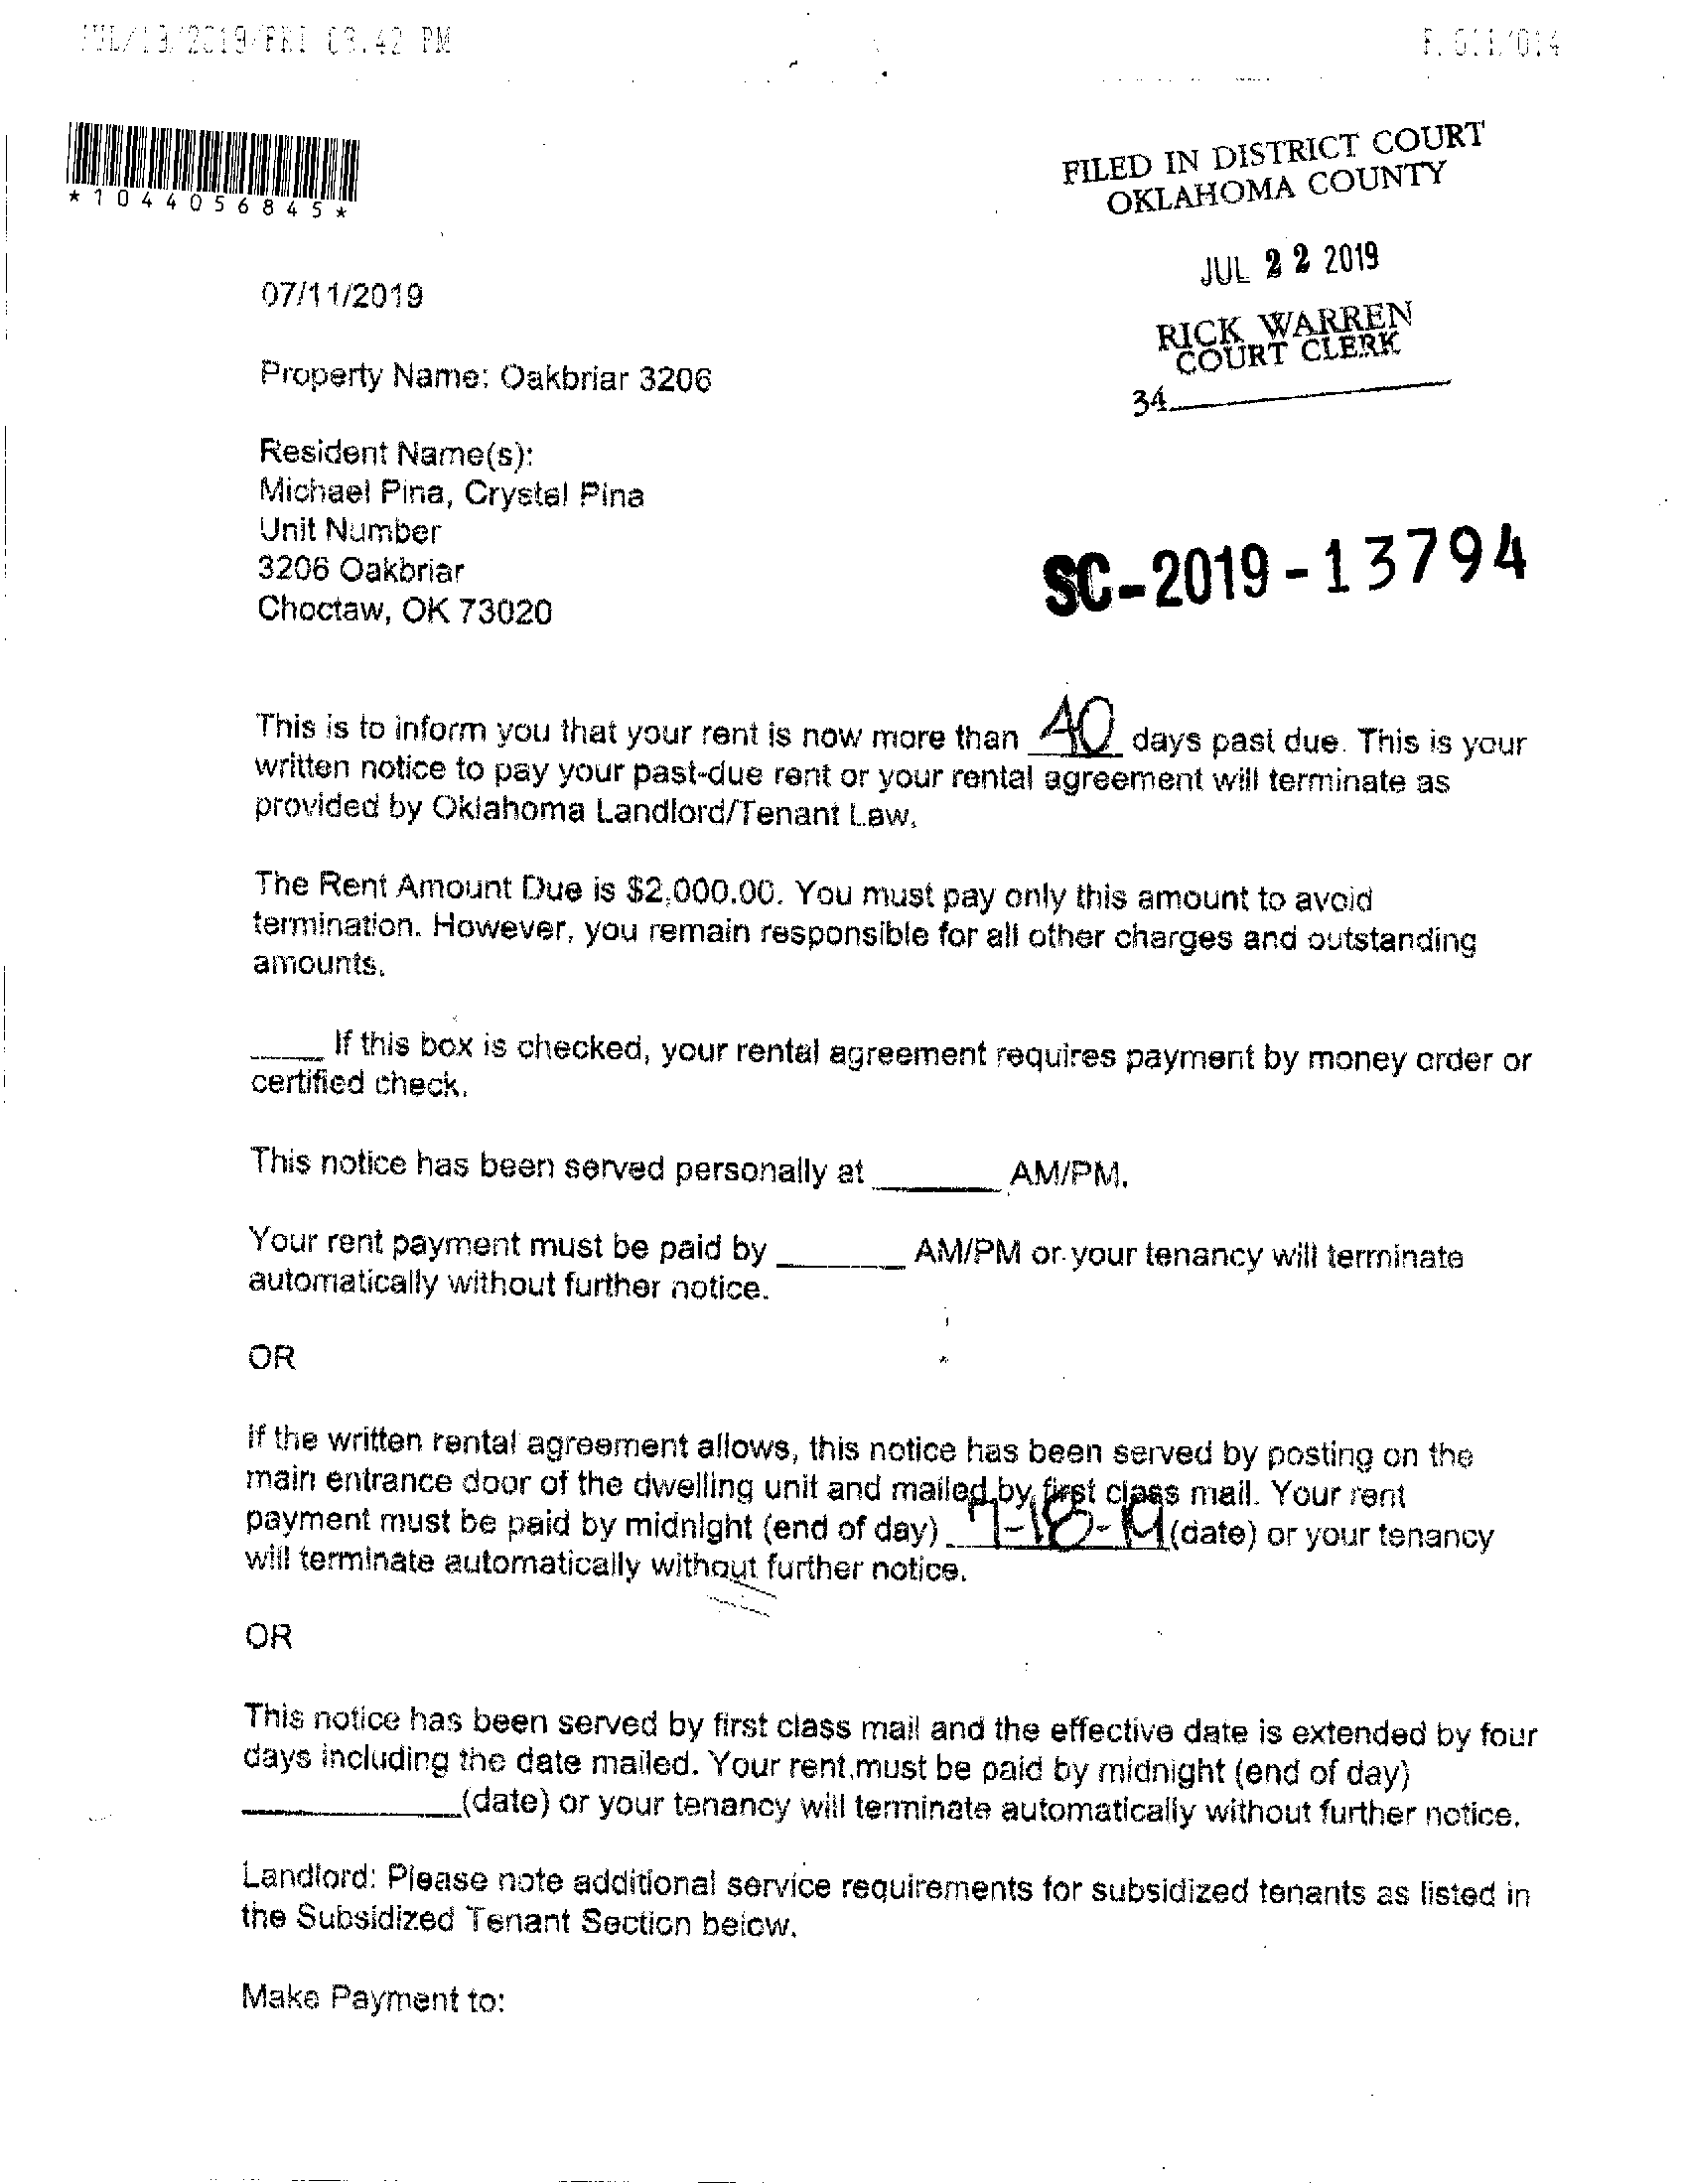 JUL/19/2019/FRI 03:42 PM
P. 011/014
*1044056845*
FILED IN DISTRICT COURT
OKLAHOMA COUNTY
JUL 22 2019
RICK WARREN
COURT CLERK
34
07/11/2019
Property Name: Oakbriar 3206
Resident Name(s):
Michael Pina, Crystal Pina
Unit Number
3206 Oakbriar
Choctaw, OK 73020
SC-2019-13794
This is to inform you that your rent is now more than 40 days past due. This is your
written notice to pay your past-due rent or your rental agreement will terminate as
provided by Oklahoma Landlord/Tenant Law.
The Rent Amount Due is $2,000.00. You must pay only this amount to avoid
termination. However, you remain responsible for all other charges and outstanding
amounts.
_____ If this box is checked, your rental agreement requires payment by money order or
certified check.
This notice has been served personally at ________ AM/PM.
Your rent payment must be paid by ________ AM/PM or your tenancy will terminate
automatically without further notice.
OR
If the written rental agreement allows, this notice has been served by posting on the
main entrance door of the dwelling unit and mailed by first class mail. Your rent
payment must be paid by midnight (end of day) 7-18-19 (date) or your tenancy
will terminate automatically without further notice.
OR
This notice has been served by first class mail and the effective date is extended by four
days including the date mailed. Your rent must be paid by midnight (end of day)
______________(date) or your tenancy will terminate automatically without further notice.
Landlord: Please note additional service requirements for subsidized tenants as listed in
the Subsidized Tenant Section below.
Make Payment to: